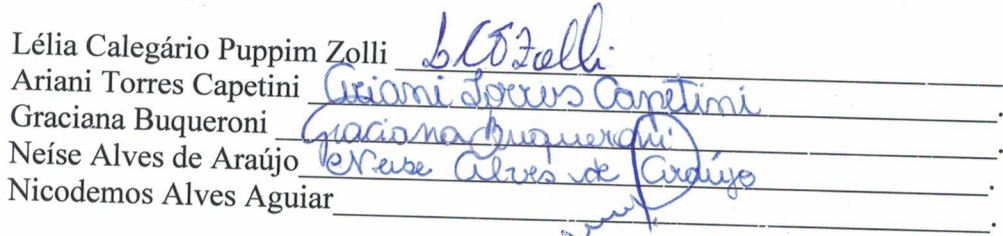 Lélia Calegário Puppim Zolli
Ariani Torres Capetini Ariani Torres Capetini.
Graciana Buqueroni Graciana Buqueroni.
Neíse Alves de Araújo Neise Alves de Araújo
Nicodemos Alves Aguiar.